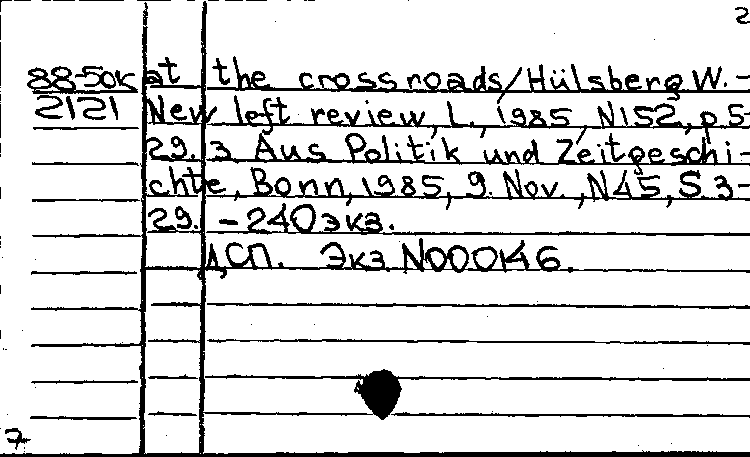 2
88-50к at the crossroads/Hülsberg W.-
2121 New left review, L., 1985, N152, p 5-
29. 3 Aus Politik und Zeitgeschi-
chte, Bonn, 1985, 9. Nov., N45, S. 3-
29. - 240 экз.
ДСП. Экз N000146.
7